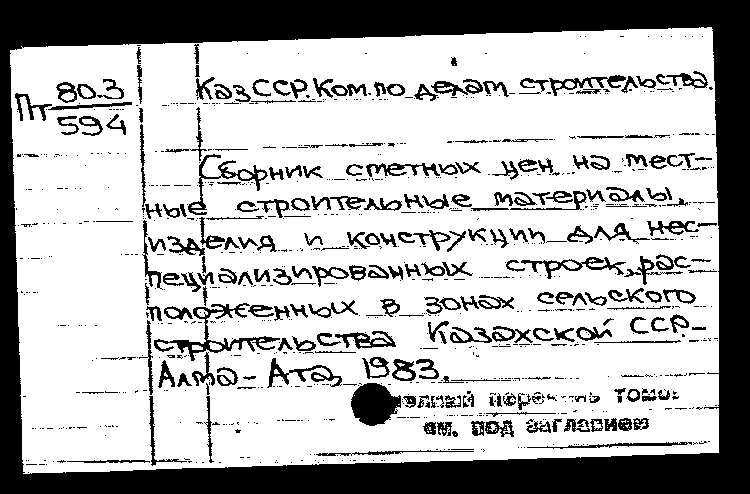 Пт 80.3
594
КазССР. Ком. по делам строительства.
Сборник сметных цен на мест-
ные строительные материалы,
изделия и конструкции для нес-
пециализированных строек, рас-
положенных в зонах сельского
строительства Казахской ССР.-
Алма-Ата, 1983.
полный перечень томов
см. под заглавием